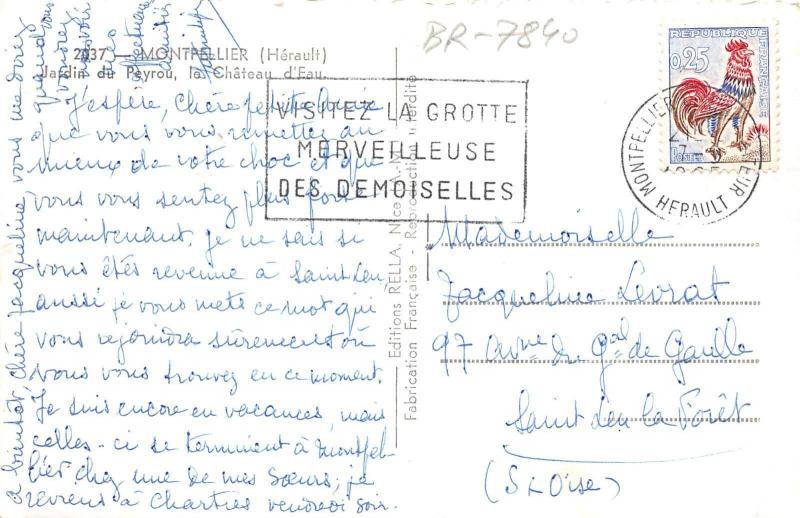 BR-7840
2037 — MONTPELLIER (Hérault)
Jardin du Peyrou, le Château d'Eau.
RÉPUBLIQUE FRANÇAISE
0,25
POSTES
MONTPELLIER
HERAULT
VISITEZ LA GROTTE
MERVEILLEUSE
DES DEMOISELLES
J'espère, chère petite
que vous vous remettez au
mieux de votre choc et que
vous vous sentez plus forte
maintenant. Je ne sais si
vous êtes revenue à Saint Leu
aussi je vous mets ce mot qui
vous rejoindra sûrement où
vous vous trouvez en ce moment.
Je suis encore en vacances, mais
celles-ci se terminent à Montpel-
lier chez une de mes sœurs; je
reviens à Chartres vendredi soir.
à bientôt, chère Jacqueline vous me direz
quand vous
voudrez
Editions RELLA, Nice
Fabrication Française - Reproduction interdite
Mademoiselle
Jacqueline Levrat
97 avne du Gal de Gaulle
Saint Leu la Forêt
(S & Oise)